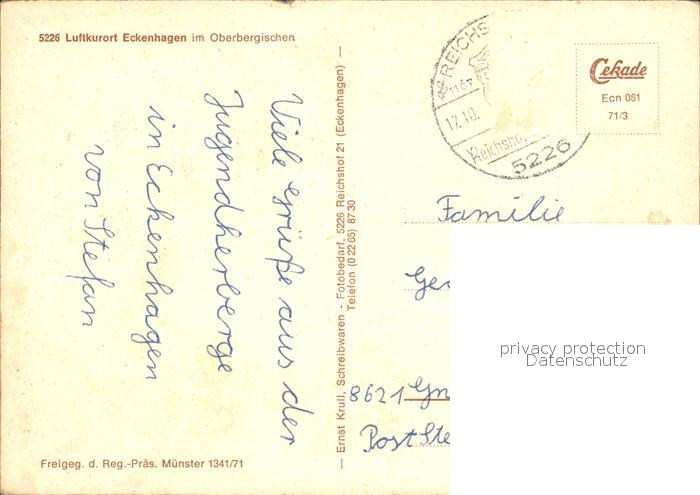 5226 Luftkurort Eckenhagen im Oberbergischen
Viele Grüße aus der
Jugendherberge
in Eckenhagen
von Stefan
Freigeg. d. Reg.-Präs. Münster 1341/71
— Ernst Krull, Schreibwaren - Fotobedarf, 5226 Reichshof 21 (Eckenhagen) —
Telefon (0 22 65) 87 30
REICHS
17.10.
Reichsho
5226
Cekade
Ecn 061
71/3
Familie
Ge
8621 Gn
Post Ste
privacy protection
Datenschutz